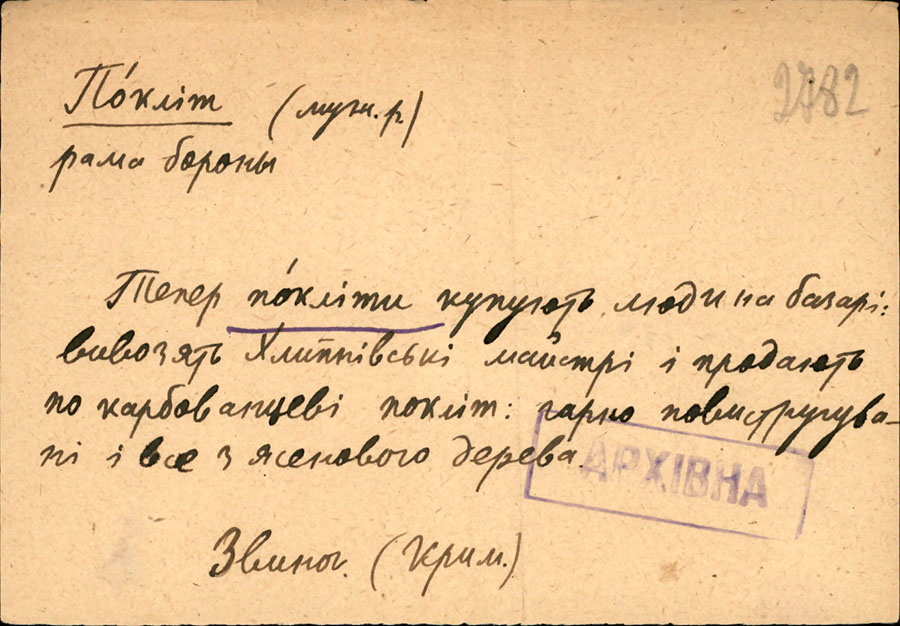 2782
По́кліт (муж. р.)
рама бороны
Тепер по́кліти купують люди на базарі:
вивозять Хлипнівські майстрі і продають
по карбованцеві покліт: гарно повистругува-
ні і все з ясенового дерева.
АРХІВНА
Звиног. (Крим.)